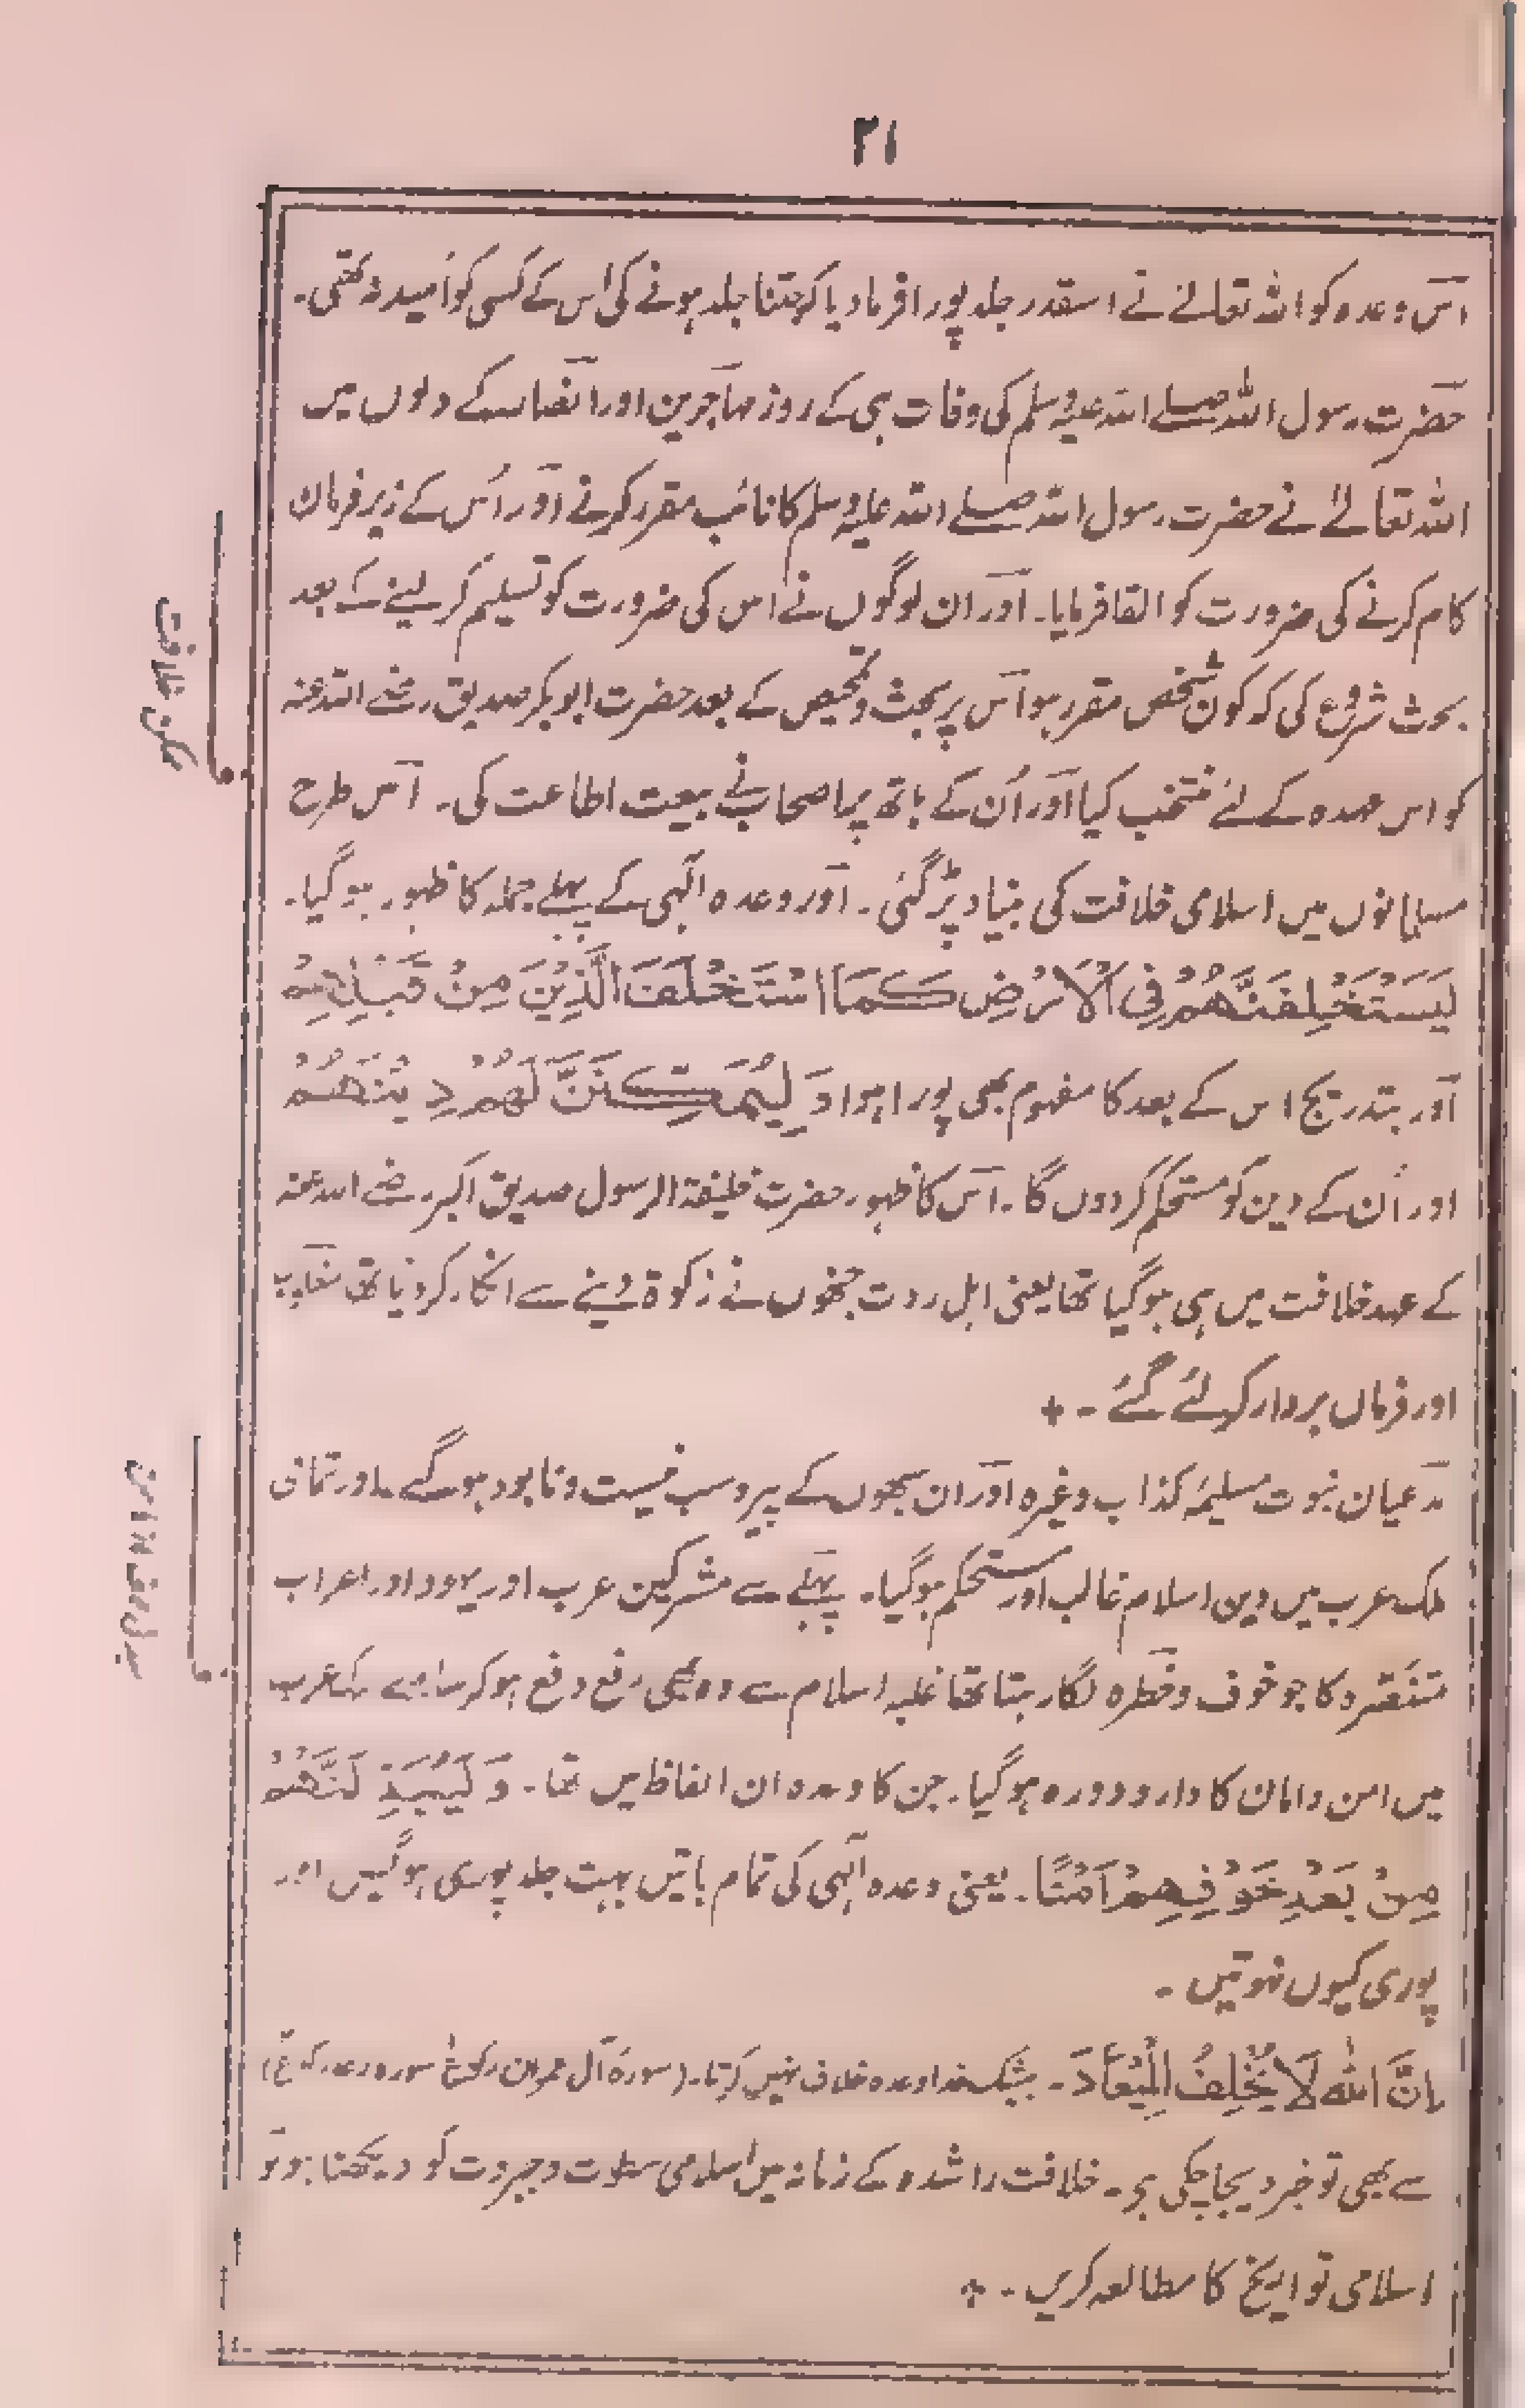 ۲۱
اس وعدہ کو اللہ تعالےٰ نے اسقدر جلد پورا فرمادیا کہ جتنا جلد ہونے کی اس کے کسی کو اُمید نہ تھی۔
حضرت رسول اللہ صلے اللہ علیہ وسلم کی وفات ہی کے روز مہاجرین اور انصار کے دلوں میں
اللہ تعالےٰ نے حضرت رسول اللہ صلے اللہ علیہ وسلم کا نائب مقرر کرنے اور اُس کے زیر فرمان
کام کرنے کی ضرورت کو القا فرمایا۔ اور ان لوگوں نے اس کی ضرورت کو تسلیم کر لینے کے بعد
بحث شروع کی کہ کون شخص مقرر ہو اس پر بحث و تمحیص کے بعد حضرت ابو بکر صدیق رضے اللہ عنہ
کو اس عہدہ کے لئے منتخب کیا اور اُن کے ہاتھ پر اصحاب نے بیعت اطاعت کی۔ اس طرح
مسلمانوں میں اسلامی خلافت کی بنیاد پڑ گئی۔ اور وعدہ الٰہی کے پہلے جملہ کا ظہور ہو گیا۔
لَيَسْتَخْلِفَنَّهُمْ فِي الْاَرْضِ كَمَا اسْتَخْلَفَ الَّذِيْنَ مِنْ قَبْلِهِمْ
اور بتدریج اس کے بعد کا مفہوم بھی پورا ہوا وَ لَيُمَكِّنَنَّ لَهُمْ دِيْنَهُمْ
اور اُن کے دین کو مستحکم کر دوں گا۔ اس کا ظہور حضرت خلیفۃ الرسول صدیق اکبر رضے اللہ عنہ
کے عہد خلافت میں ہی ہو گیا تھا یعنی اہل ردت جنھوں نے زکوۃ دینے سے انکار کر دیا تھا مغلوب
اور فرماں بردار کر لئے گئے۔ +
مدعیان نبوت مسلیمہ کذاب وغیرہ اور ان سبھوں کے پیرو سب نیست و نابود ہو گے۔ اور تمامی
ملک عرب میں دین اسلام غالب اور مستحکم ہو گیا۔ پہلے سے مشرکین عرب اور یہود اور اعراب
متنصرہ کا جو خوف و خطرہ لگا رہتا تھا غلبہ اسلام سے وہ بھی رفع دفع ہو کر سارے ملک عرب
میں امن و امان کا دار و دورہ ہو گیا۔ جن کا وعدہ ان الفاظ میں تھا۔ وَ لَيُبَدِّ لَنَّهُمْ
مِنْ بَعْدِ خَوْفِهِمْ اَمْنًا۔ یعنی وعدہ الٰہی کی تمام باتیں بہت جلد پوری ہو گیس اور
پوری کیوں نہوتیں۔
اِنَّ اللّٰهَ لَا يُخْلِفُ الْمِيْعَادَ۔ بیشک خدا وعدہ خلاف نہیں کرتا۔ (سورہ آل عمران رکوع سورہ رعد رکوع)
سے بھی تو خبر دیجا چکی ہی۔ خلافت راشدہ کے زمانہ میں اسلامی سطوت و جبروت کو دیکھنا ہو تو
اسلامی تواریخ کا مطالعہ کریں۔ +
تمکن خلافت